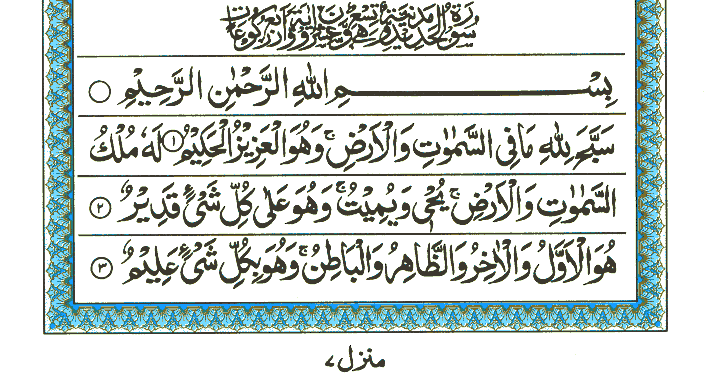 سُوْرَةُ الْحَدِيْدِ مَدَنِيَّةٌ وَّهِيَ تِسْعٌ وَّعِشْرُوْنَ اٰيَةً وَّاَرْبَعُ رُكُوْعَاتٍ
بِسْمِ اللّٰهِ الرَّحْمٰنِ الرَّحِيْمِ ○
سَبَّحَ لِلّٰهِ مَا فِي السَّمٰوٰتِ وَالْاَرْضِ ۚ وَهُوَ الْعَزِيْزُ الْحَكِيْمُ ۝۱ لَهٗ مُلْكُ
السَّمٰوٰتِ وَالْاَرْضِ ۚ يُحْيٖ وَيُمِيْتُ ۚ وَهُوَ عَلٰى كُلِّ شَيْءٍ قَدِيْرٌ ۝۲
هُوَ الْاَوَّلُ وَالْاٰخِرُ وَالظَّاهِرُ وَالْبَاطِنُ ۚ وَهُوَ بِكُلِّ شَيْءٍ عَلِيْمٌ ۝۳
منزل ۷